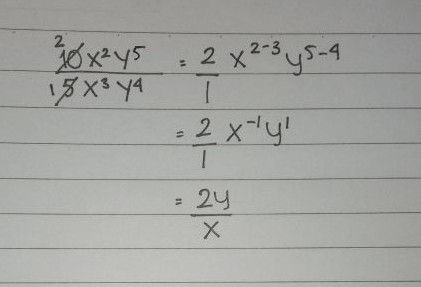 ²10x²y⁵ / ₁5x³y⁴ = 2/1 x²⁻³ y⁵⁻⁴
= 2/1 x⁻¹ y¹
= 2y/x